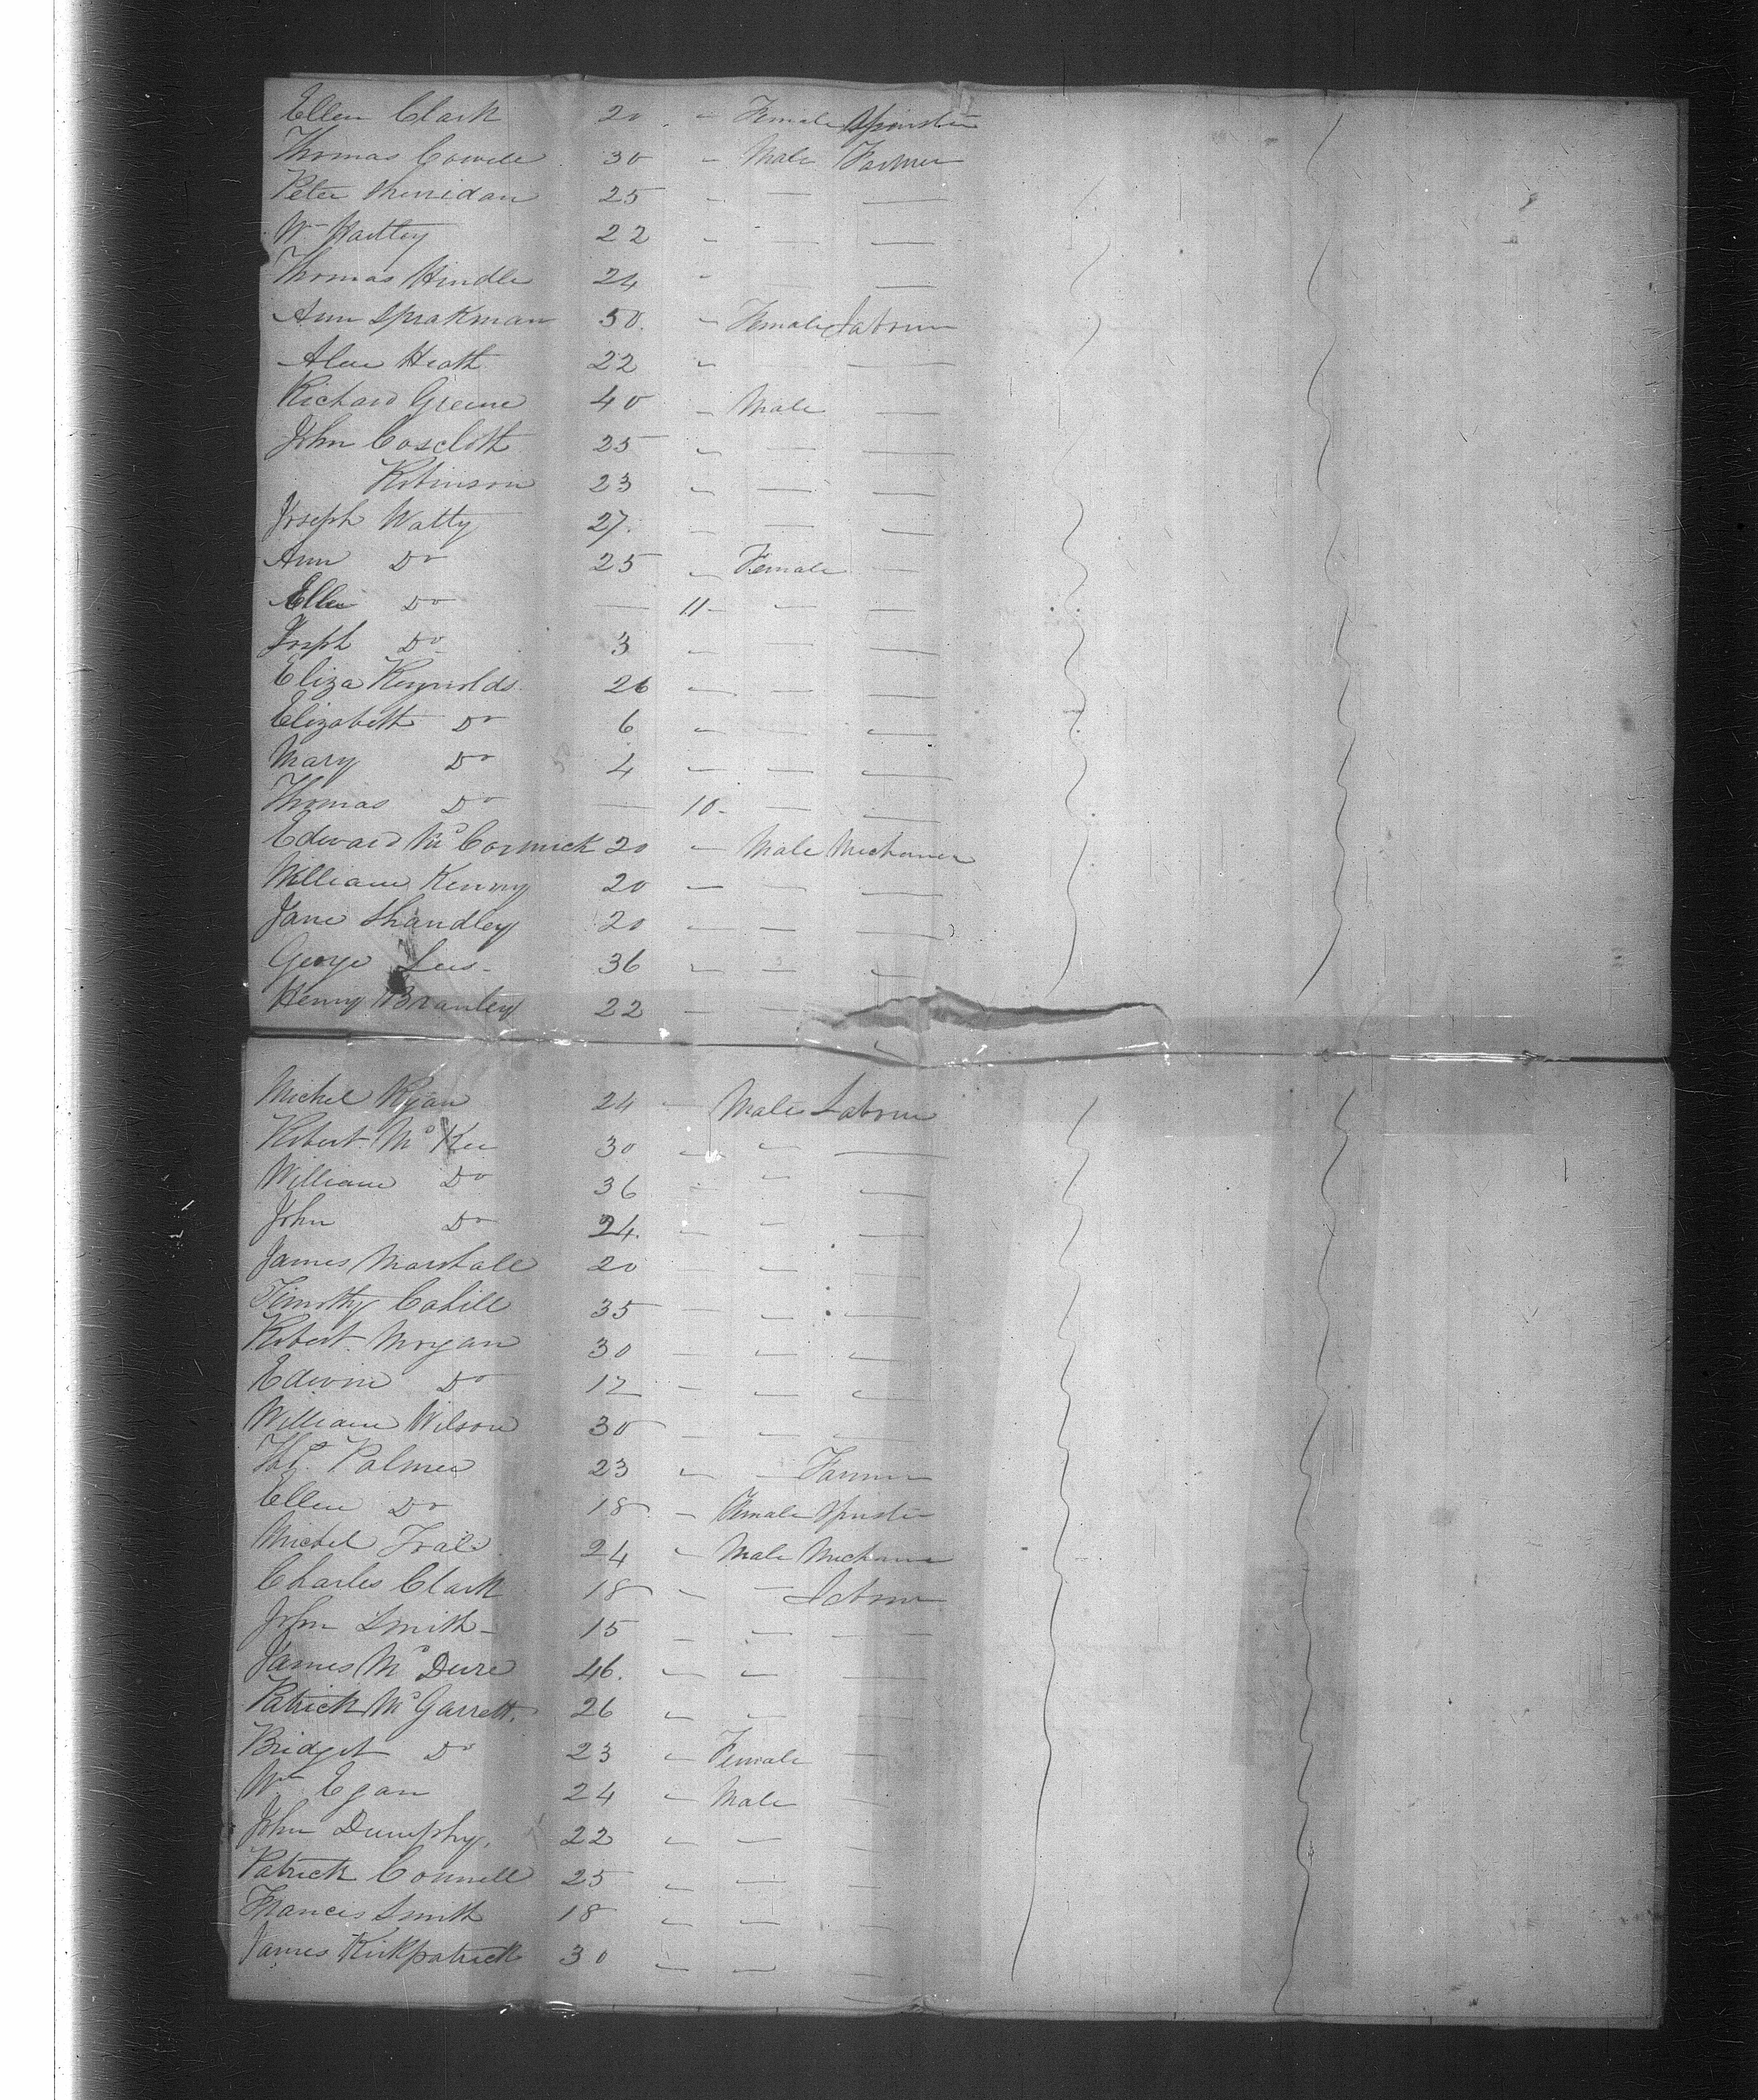 Ellen Clark 20 " Female Spinster
Thomas Cowell 30 " Male Farmer
Peter Sheridan 25 " — —
Wm Hartley 22 " — —
Thomas Hindle 24 " — —
Ann Sprakman 50. " Female Labourer
Heath 22 " —
Richard Greene 40 " Male —
John 25 " — —
Robinson 23 " — —
Joseph Watty 27. — — —
Ann Do 25 " Female —
Ellen Do — 11 — " —
Joseph Do 3 " — —
Eliza Reynolds 26 " — —
Elizabeth Do 6 " — "
Mary Do 4 " — —
Thomas Do — 10 — — —
Edward McCormick 20 " Male Mechanic
William Kenny 20 — — —
Jane Shandley 20 — — —
George Lees 36 " — "
Henry Branley 22 — —
Michel Ryan 24 — Male Labour
Robert McKee 30 " " —
William Do 36 " " "
John Do 24. " " —
James Marshall 20 — " —
Timothy Cahill 35 — " "
Robert Morgan 30 — " "
Edwin Do 12 — " "
William Wilson 30 — — "
Palmer 23 " — Farmer
Ellen Do 18 — Female Spinster
Michel 24 " Male Mechanic
Charles Clark 18 " — Labour
John Smith 15 — " —
James Mc 46. " " —
Patrick McGarrett. 26 " " —
Bridget Do 23 " Female —
Wm Egan 24 " Male —
John Dumphy. 22 " — —
Patrick Connell 25 " — —
Francis Smith 18 " — —
James Kirkpatrick 30 " — —